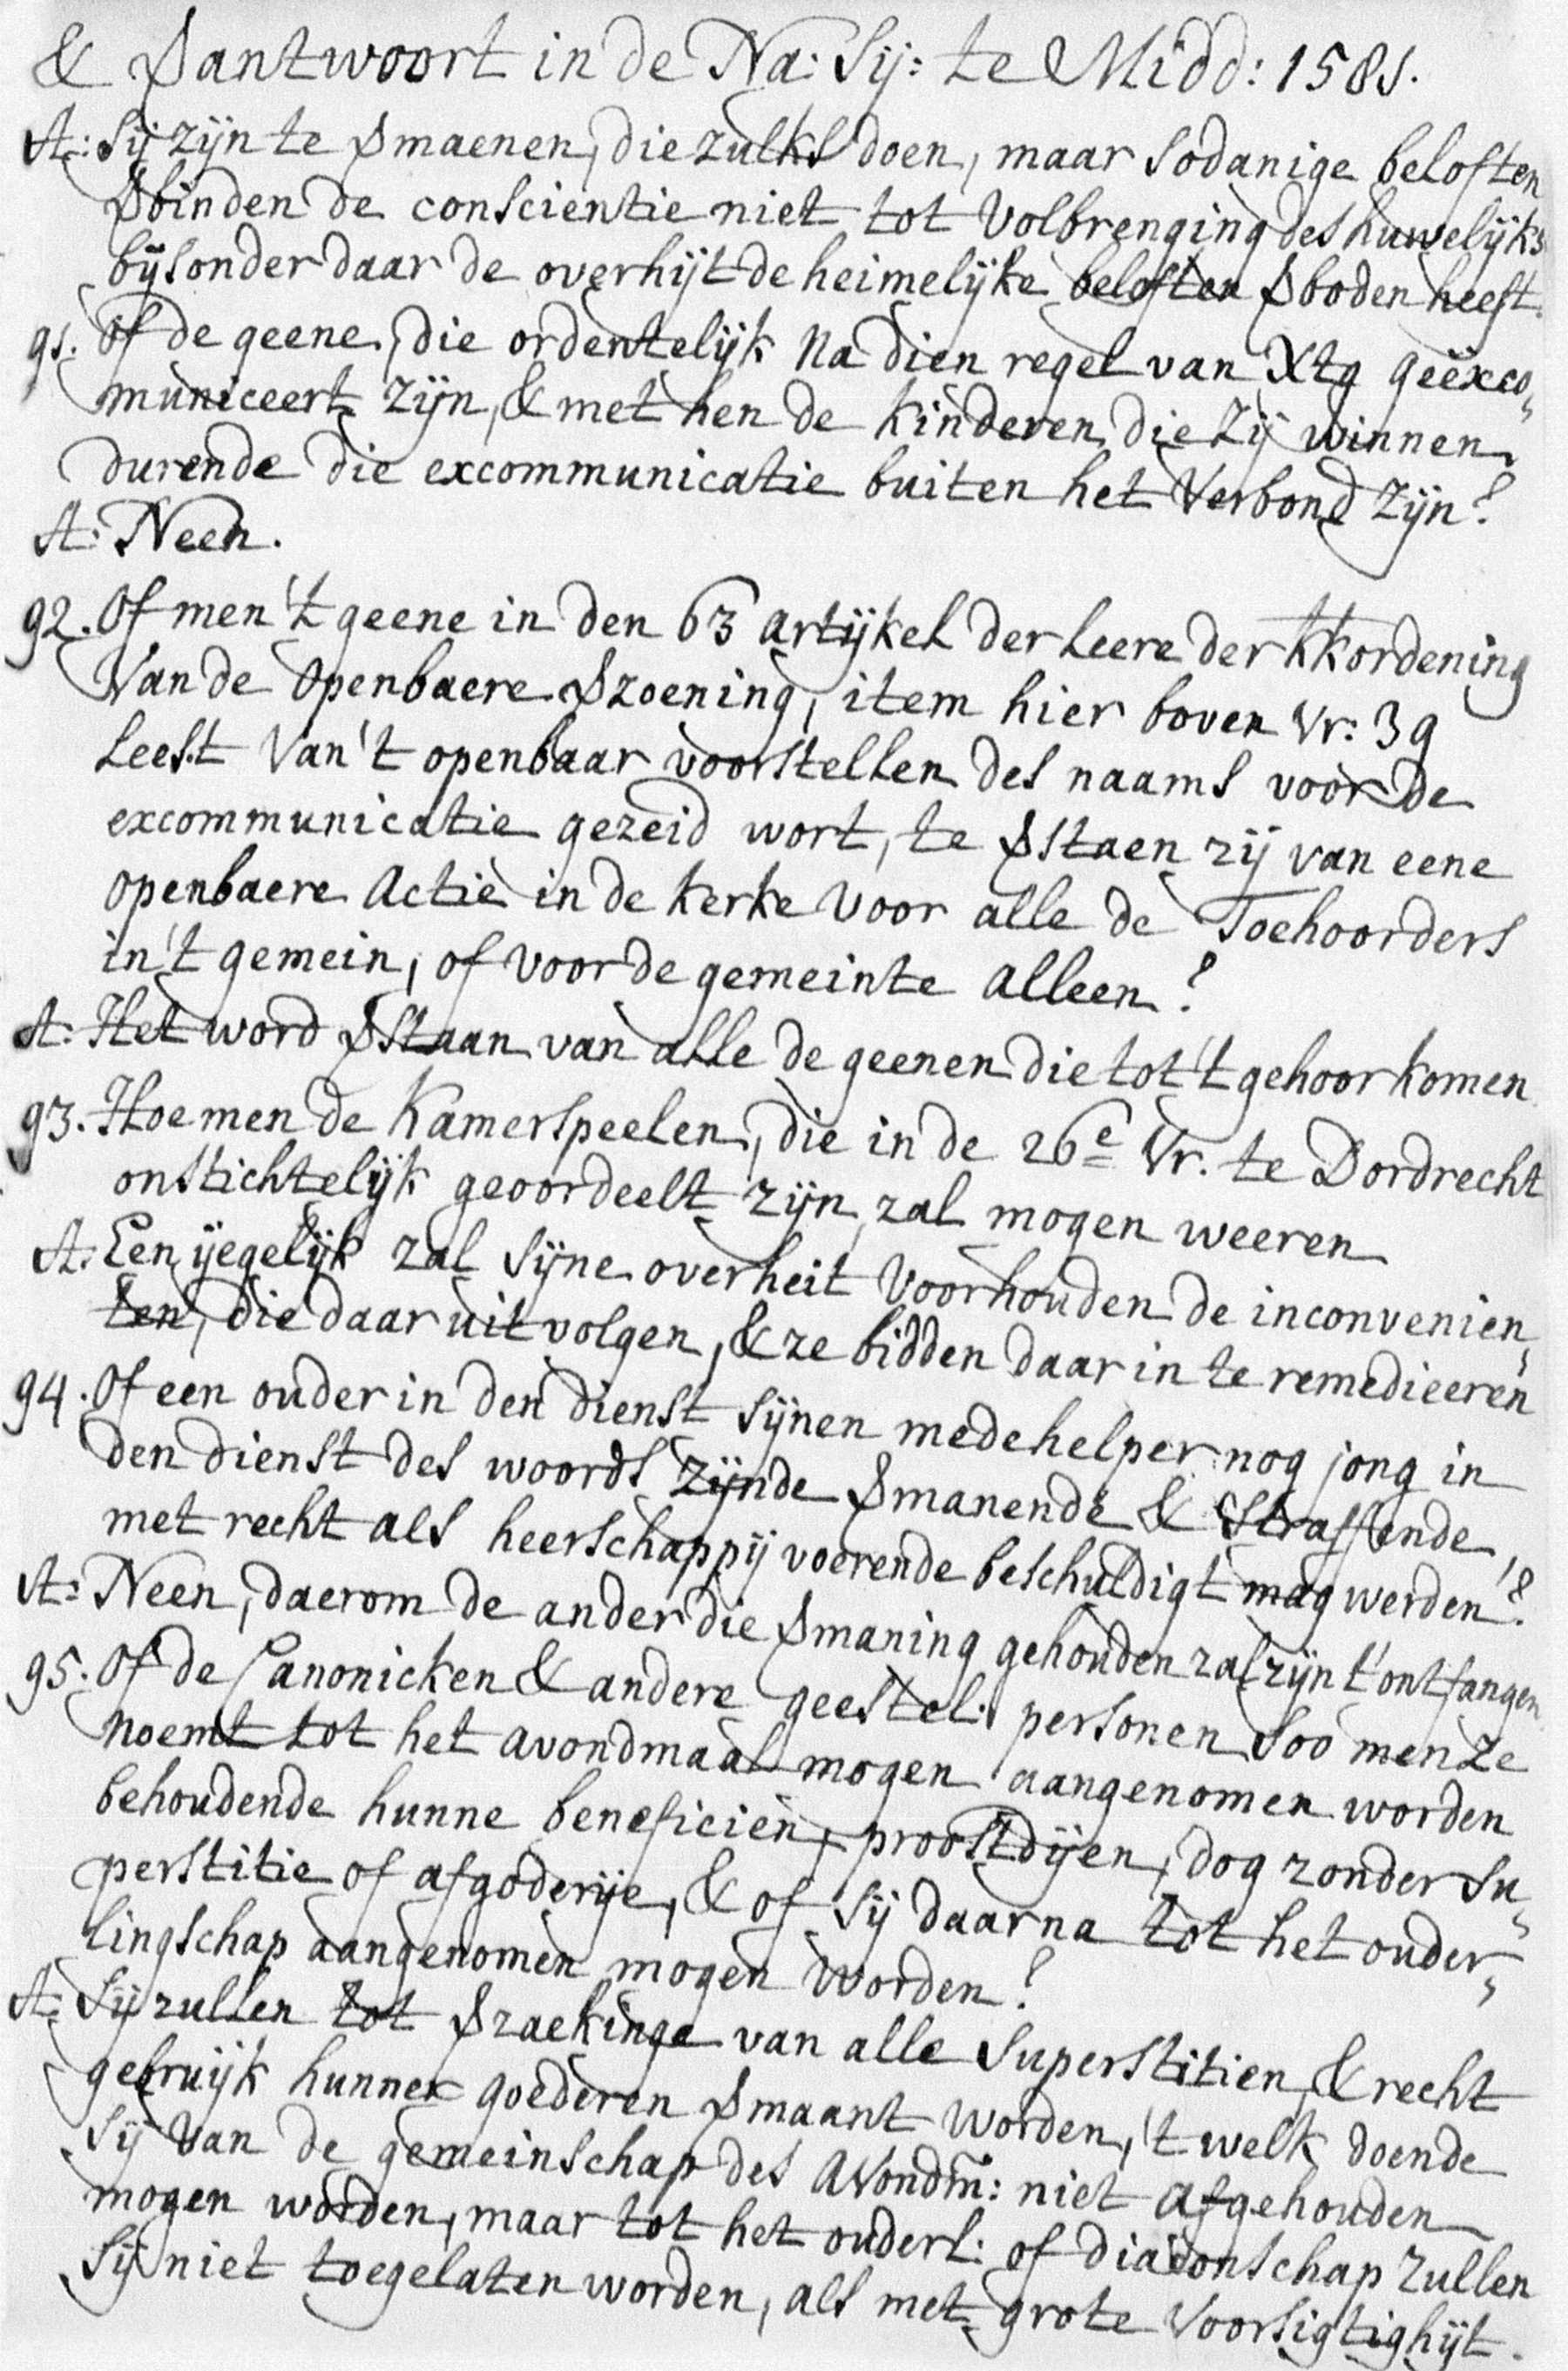 & Vantwoort in de Na: Sij: te Midd: 1581.
A: Sij zijn te Vmaenen, die zulks doen, maar sodanige beloften
Vbinden de conscientie niet tot volbrenging des huwelijks
bijsonder daar de overhijt de heimelijke beloften Vboden heeft.
91. Of de geene, die ordentelijk na dien regel van Xtq geëxco„
municeert zijn, & met hen de kinderen, die zij winnen
durende die excommunicatie buiten het Verbond zijn?
A: Neen.
92. Of men 't geene in den 63 artijkel der leere der KKordening
Van de openbaere Vzoening, item hier boven Vr: 39
leest Van 't openbaar voorstellen des naams voor de
excommunicatie gezeid wort, te Vstaen zij van eene
openbaere Actie in de kerke voor alle de Toehoorders
in 't gemein, of voor de gemeinte alleen?
A: Het word Vstaan van alle de geenen die tot 't gehoor komen
93. Hoe men de Kamerspeelen, die in de 26e Vr. te Dordrecht
onstichtelijk geoordeelt zijn, zal mogen weeren
A: Een ijegelijk zal sijne overheit voorhouden de inconvenien„
ten, die daar uit volgen, & ze bidden daar in te remedieeren
94. Of een ouder in den dienst sijnen medehelper nog jong in
den dienst des woords zijnde Vmanende & straffende,
met recht als heerschappij voerende beschuldigt mag werden?
A: Neen, daerom de ander die Vmaning gehouden zal zijn t'ontfangen
95. Of de Canonicken & andere geestel: personen soo men ze
noemt tot het avondmaal mogen aangenomen worden
behoudende hunne beneficien, proostdijen, dog zonder su„
perstitie of afgoderije, & of sij daarna tot het ouder„
lingschap aangenomen mogen worden?
A: Sij zullen tot Vzaekinge van alle superstitien, & recht
gebruijk hunner goederen Vmaant worden, 't welk doende
sij van de gemeinschap des Avondm: niet afgehouden
mogen worden, maar tot het ouderl: of diaconschap zullen
sij niet toegelaten worden, als met grote voorsigtighijt.